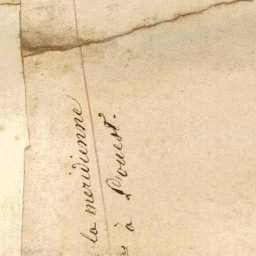 la meridienne
à L'ouest.